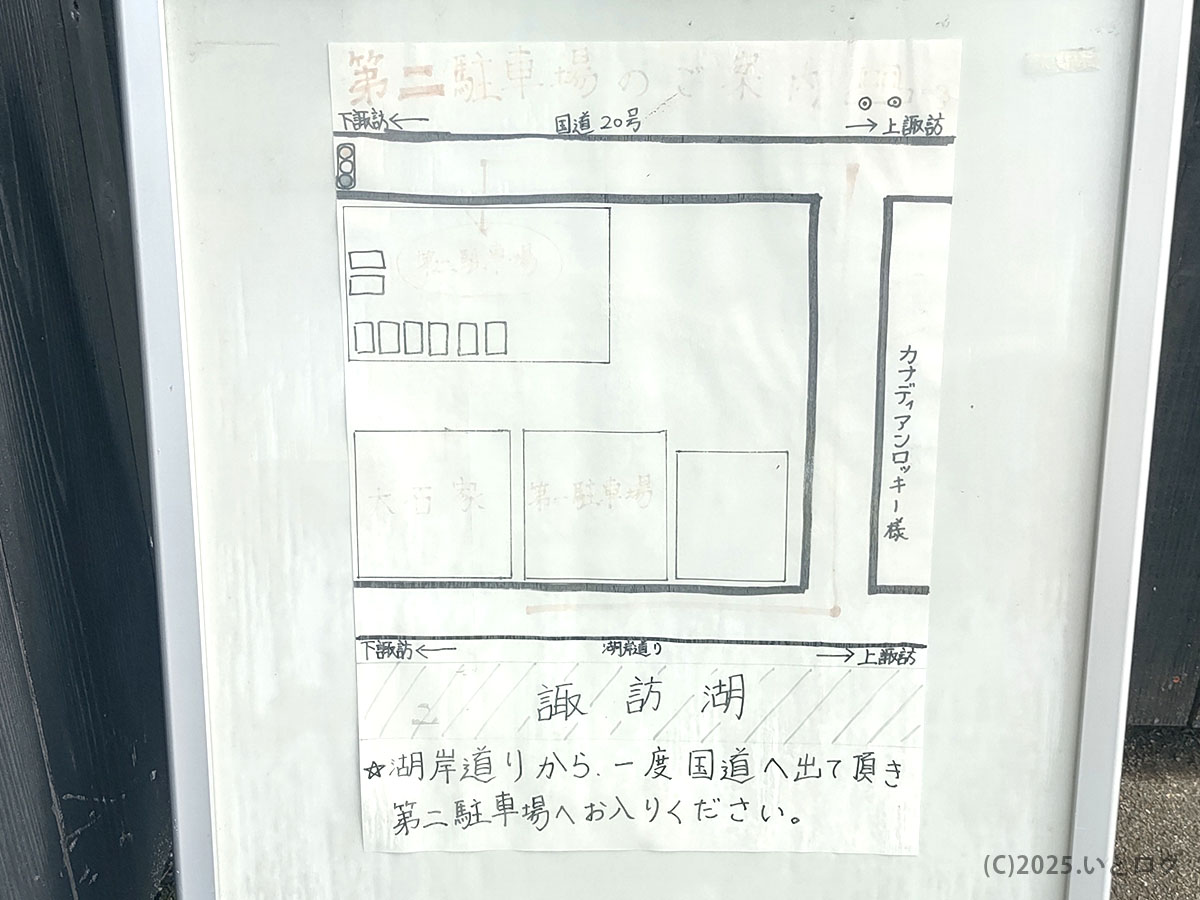 第二駐車場のご案内
下諏訪← 国道20号 →上諏訪
第二駐車場
カナディアンロッキー様
大石家 第一駐車場
下諏訪← 湖岸道り →上諏訪
諏訪湖
☆湖岸道りから、一度国道へ出て頂き
第二駐車場へお入りください。
(C)2025.いとロウ